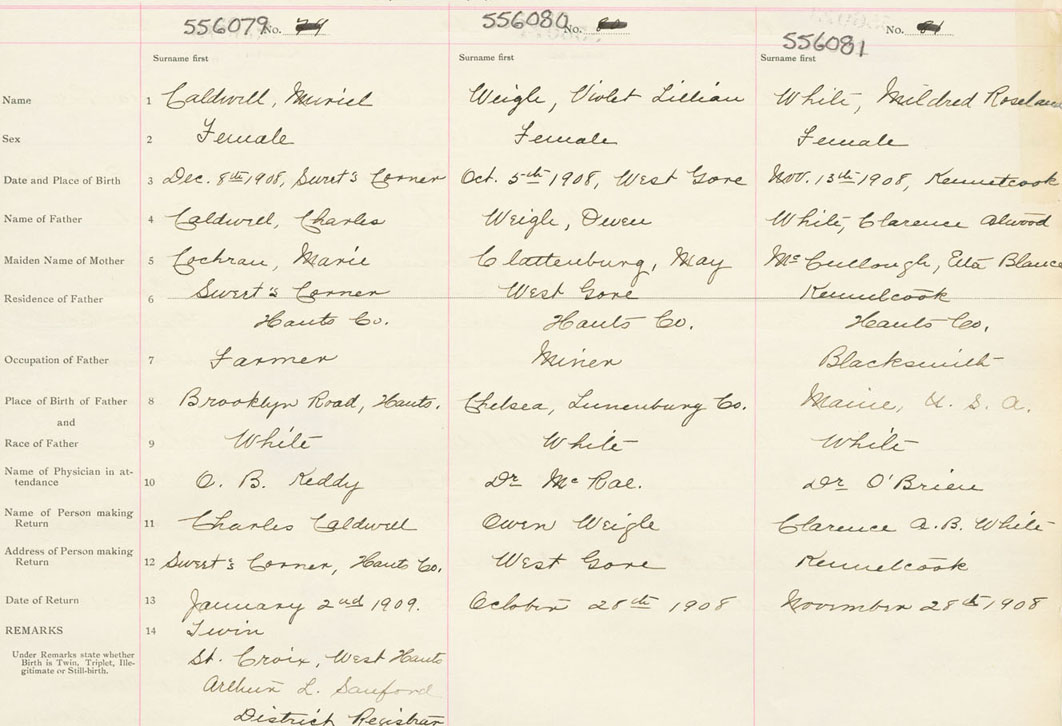 556079 No.
556080 No.
556081 No.
Surname first Surname first Surname first
Name 1 Caldwell, Muriel Weigle, Violet Lillian White, Mildred
Sex 2 Female Female Female
Date and Place of Birth 3 Dec. 8th 1908, Swert's Corner Oct. 5th 1908, West Gore Nov. 13th 1908, Kennetcook
Name of Father 4 Caldwell, Charles Weigle, Owen White, Clarence Atwood
Maiden Name of Mother 5 Cochran, Marie Clattenburg, May McCullough, Eta
Residence of Father 6 Swert's Corner West Gore Kennetcook
Hants Co. Hants Co. Hants Co.
Occupation of Father 7 Farmer Miner Blacksmith
Place of Birth of Father 8 Brooklyn Road, Hants. Chelsea, Lunenburg Co. Maine, U. S. A.
and
Race of Father 9 White White White
Name of Physician in at-
tendance 10 O. B. Keddy Dr McRae. Dr O'Brien
Name of Person making
Return 11 Charles Caldwell Owen Weigle Clarence A. B. White
Address of Person making
Return 12 Swert's Corner, Hants Co. West Gore Kennetcook
Date of Return 13 January 2nd 1909. October 28th 1908 November 28th 1908
REMARKS 14 Twin
Under Remarks state whether
Birth is Twin, Triplet, Ille-
gitimate or Still-birth.
St. Croix, West Hants
Arthur L. Sanford
District Registrar